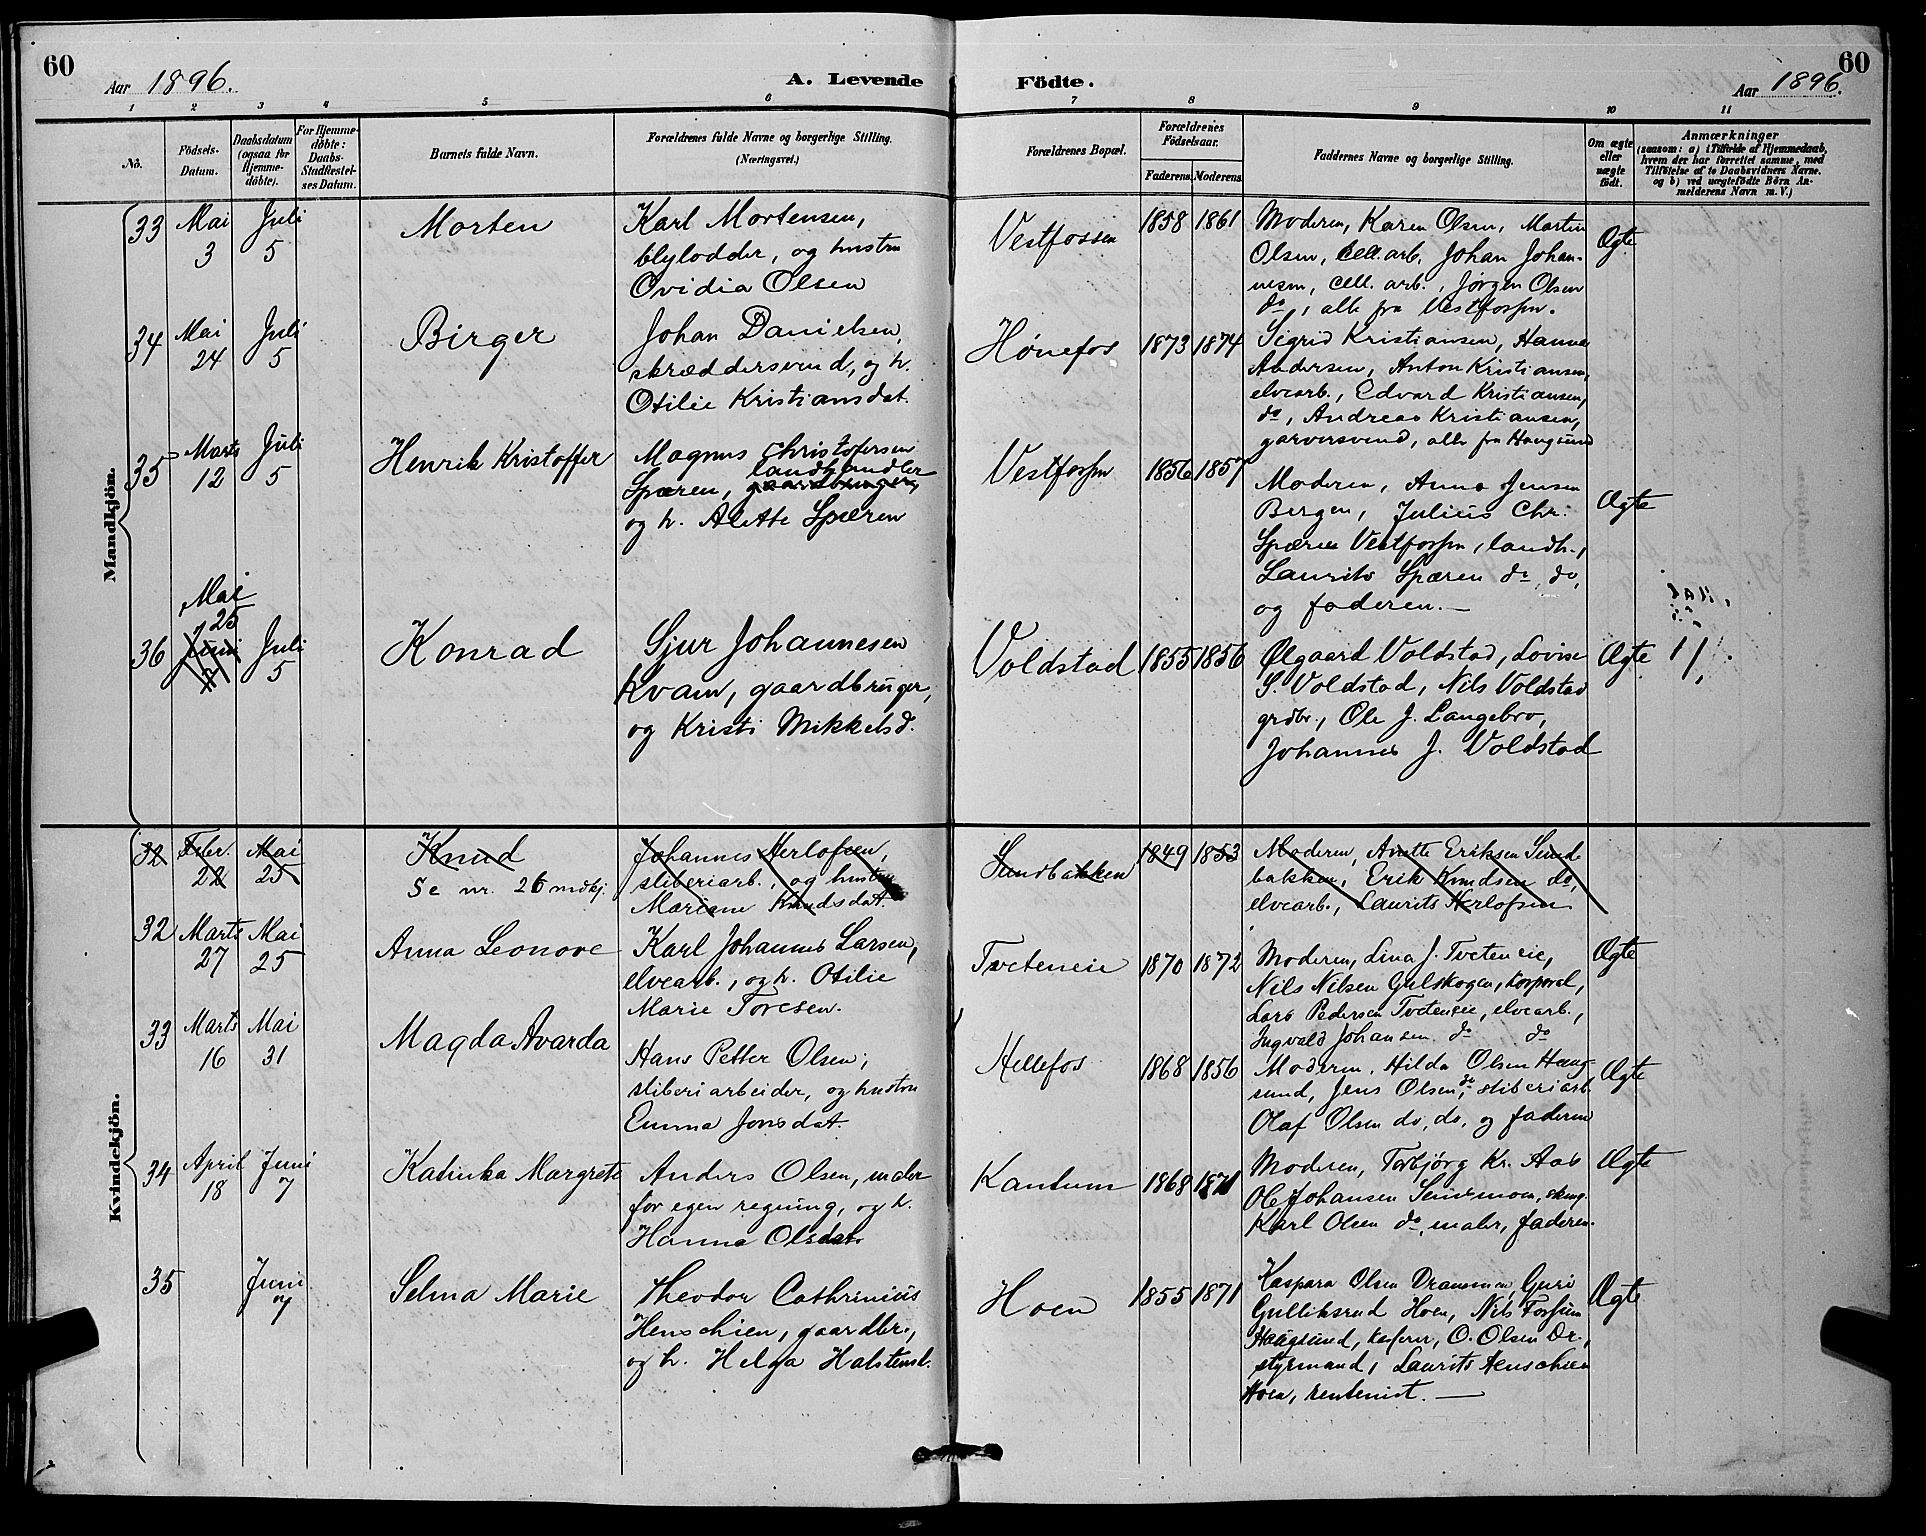 60
Aar 1896.
A. Levende
Födte.
Aar 1896.
60
1 2 3 4 5 6 7 8 9 10 11
No.
Födsels-
Datum.
Daabsdatum
(ogsaa for
Hjemme-
döbte).
For Hjemme-
döbte:
Daabs-
Stadfæstel-
ses Datum.
Barnets fulde Navn.
Forældrenes fulde Navne og borgerlige Stilling.
(Næringsvei.)
Forældrenes Bopæl.
Forældrenes
Födselsaar.
Faderens. Moderens.
Faddernes Navne og borgerlige Stilling.
Om ægte
eller
uægte
födt.
Anmærkninger
(saasom: a) i Tilfælde af Hjemmedaab,
hvem der har forrettet samme, med
Tilföielse af to Daabsvidners Navne.
og b) ved uægtefödte Börn An-
melderens Navn m. V.)
Mandkjön.
33 Mai 3 Juli 5 Morten
Karl Mortensen,
blylodder, og hustru
Ovidia Olsen
Vestfossen 1858 1861
Moderen, Karen Olsen, Martin
Olsen, cell. arb. Johan Johan-
nesen, cell. arb., Jørgen Olsen
do, alle fra Vestfossen.
Ægte
34 Mai 24 Juli 5 Birger
Johan Danielsen,
skræddersvend, og h.
Otilie Kristiansdat.
Hønefos 1873 1874
Sigrid Kristiansen, Hanna
Andersen, Anton Kristiansen,
elvearb., Edvard Kristiansen,
do, Andreas Kristiansen,
garversvend, alle fra Haugsund
35 Marts 12 Juli 5 Henrik Kristoffer
Magnus Christofersen
landhandler
Spæren, gaardbruger,
og h. Alette Spæren
Vestfossen 1856 1857
Moderen, Anna Jensen
Bergen, Julius Chr.
Spæren Vestfossen, landh.,
Laurits Spæren do, do,
og faderen.
Ægte
36 Mai 25 Juni 7 Juli 5 Konrad
Sjur Johannesen
Kvam, gaardbruger,
og Kristi Mikkelsd.
Voldstad 1855 1856
Ølgaard Voldstad, Lovise
S. Voldstad, Nils Voldstad
grdbr., Ole J. Langebro,
Johannes J. Voldstad
Ægte
Kvindekjön.
32 Febr. 22 Mai 25 Knud
Se nr. 26 mdkj
Johannes Herlofsen,
sliberiarb., og hustru
Mariane Knudsdat.
Sundbakken 1849 1853
Moderen, Anette Eriksen Sund-
bakken, Erik Knudsen do,
elvearb., Laurits Herlofsen
32 Marts 27 Mai 25 Anna Leonore
Karl Johannes Larsen,
elvearb., og h. Otilie
Marie Toresen.
Tveteneie 1870 1872
Moderen, Lina J. Tveteneie,
Nils Nilsen Gulskogen, korporal,
Lars Pedersen Tveteneie, elvearb.,
Ingvald Johansen do do
Ægte
33 Marts 16 Mai 31 Magda Avarda
Hans Petter Olsen,
sliberiarbeider, og hustru
Emma Jonsdat.
Hellefos 1868 1856
Moderen, Hilda Olsen Haug-
sund, Jens Olsen do, sliberiarb.
Olaf Olsen do, do, og faderen
Ægte
34 April 18 Juni 7 Katinka Margrete
Anders Olsen, maler
for egen regning, og h.
Hanna Olsdat.
Kantum 1868 1871
Moderen, Torbjørg Kr. Aas
Ole Johansen
Karl Olsen do, maler, faderen.
Ægte
35 Juni 7 Selma Marie
Theodor Cathrinius
Henschien, gaardbr.,
og h. Helga Halstensd.
Hoen 1855 1871
Kaspara Olsen Drammen, Guri
Gulliksrud Hoen, Nils Forsum
Haugsund, kasserer, O. Olsen Dr.,
styrmand, Laurits Henschien
Hoen, rentenist.
Ægte